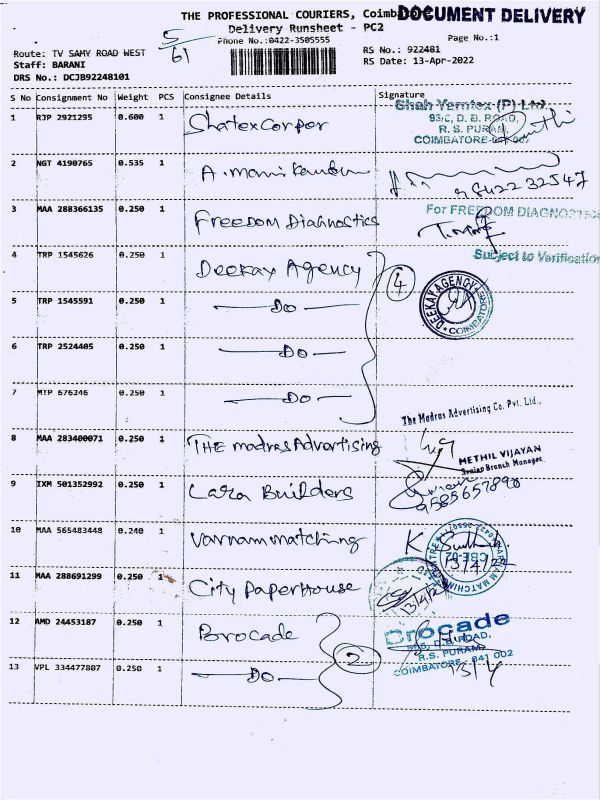 THE PROFESSIONAL COURIERS, Coimbatore
DOCUMENT DELIVERY
Delivery Runsheet - PC2
5/61
Phone No.:0422-3505555
Page No.:1
Route: TV SAMY ROAD WEST
RS No.: 922481
Staff: BARANI
RS Date: 13-Apr-2022
DRS No.: DCJB92248101
S No Consignment No Weight PCS Consignee Details Signature
1 RJP 2921295 0.600 1 Shatex Corpor
Shah Yerntex (P) Ltd
93/C, D. B. ROAD,
R. S. PURAM,
COIMBATORE-641 002
2 NGT 4190765 0.535 1 A. mani
9842232547
3 MAA 288366135 0.250 1 Freedom Diagnostics
For FREEDOM DIAGNOSTICS
Subject to Verification
4 TRP 1545626 0.250 1 Deekay Agency
4
DEEKAY AGENCY
COIMBATORE
5 TRP 1545591 0.250 1 — Do —
6 TRP 2524405 0.250 1 — Do —
7 MTP 676246 0.250 1 — Do —
The Madras Advertising Co. Pvt. Ltd.,
8 MAA 283400071 0.250 1 THE madras Advertising
METHIL VIJAYAN
Senior Branch Manager
9 IXM 501352992 0.250 1 Lara Builders
9585657890
10 MAA 565483448 0.240 1 Varnam matching
13/4/22
11 MAA 288691299 0.250 1 City Paper House
13/4/2
12 AMD 24453187 0.250 1 Brocade
Brocade
D.B. ROAD,
R.S. PURAM,
COIMBATORE - 641 002
2
13 VPL 334477807 0.250 1 — Do —
13/4